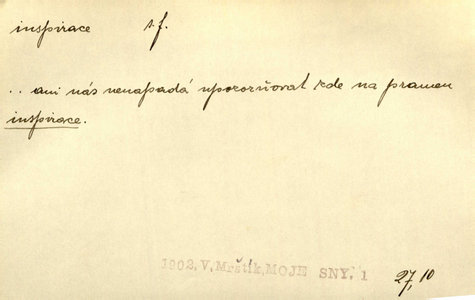 inspirace s.f.
.. ani nás nenapadá upozorňovat zde na pramen
inspirace.
1902, V. Mrštík, MOJE SNY. 1
27, 10